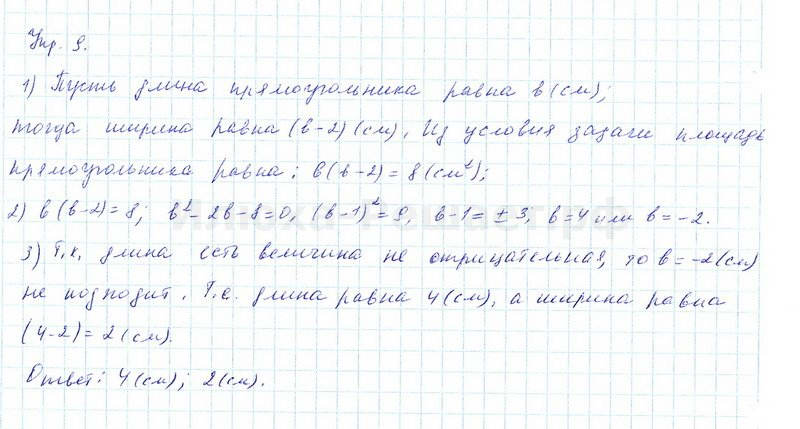 Упр. 9.
1) Пусть длина прямоугольника равна b (см);
тогда ширина равна (b-2) (см), Из условия задачи площадь
прямоугольника равна: b(b-2) = 8 (см²);
2) b(b-2)=8; b²-2b-8=0, (b-1)²=9, b-1=±3, b=4 или b=-2.
3) Т.к. длина есть величина не отрицательная, то b=-2(см)
не подходит. Т.е. длина равна 4(см), а ширина равна
(4-2)=2(см).
Ответ: 4(см); 2(см).